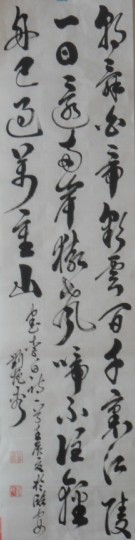 朝辭白帝彩雲間千裏江陵
一日還兩岸猿聲啼不住輕
舟已過萬重山
書李白詩一首